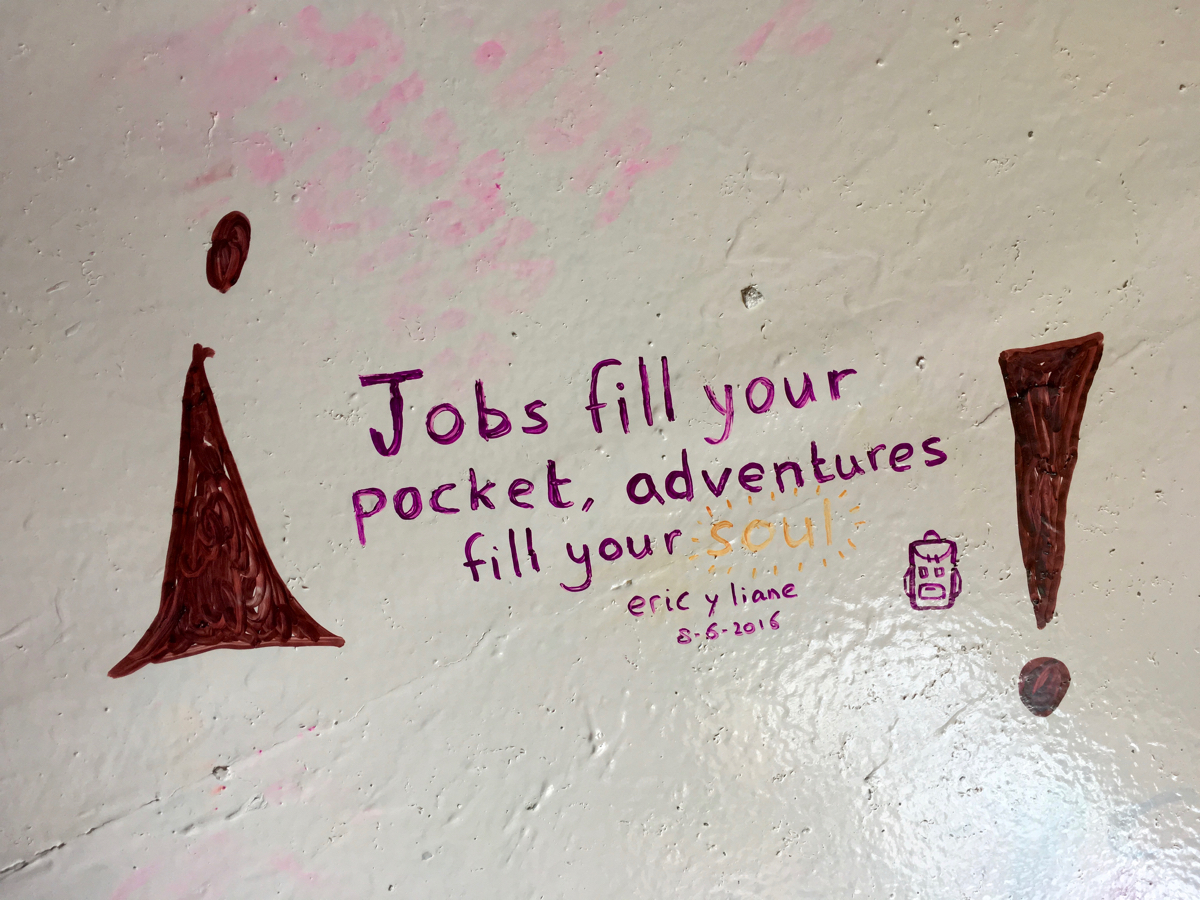 ¡
Jobs fill your
pocket, adventures
fill your soul
!
eric y liane
8-6-2016